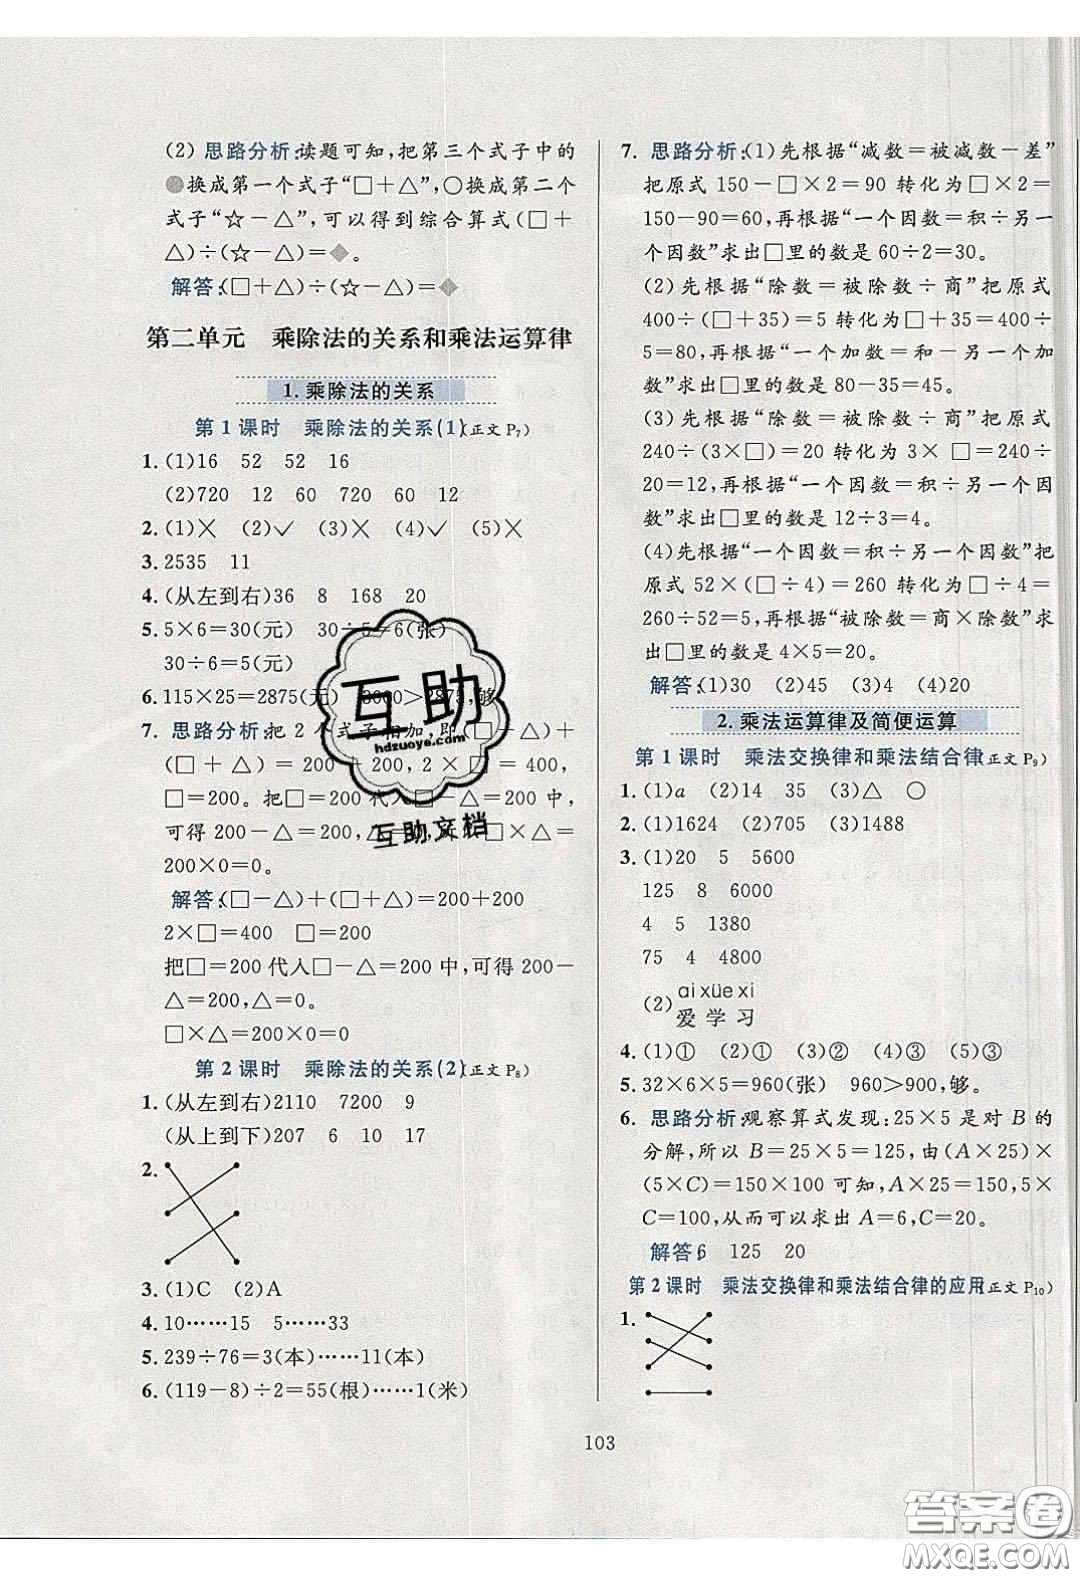 (2) 思路分析:读题可知,把第三个式子中的
●换成第一个式子“□+△”,○换成第二个
式子“☆－△”,可以得到综合算式(□+
△)÷(☆－△)=◆。
解答:(□＋△)÷(☆－△)=◆
第二单元 乘除法的关系和乘法运算律
1.乘除法的关系
第1课时 乘除法的关系(1)(正文P7)
1. (1)16 52 52 16
(2)720 12 60 720 60 12
2. (1)× (2)√ (3)× (4)√ (5)×
3. 2535 11
4. (从左到右)36 8 168 20
5. 5×6=30(元) 30÷5=6(张)
30÷6=5(元)
6. 115×25=2875(元) 3000>2875,够。
7. 思路分析:把2个式子相加,即(□－△)
+(□＋△)=200＋200,2×□=400,
□=200。把□=200代入□－△=200中,
可得200－△=200,△=0,所以□×△=
200×0=0。
解答:(□－△)＋(□＋△)=200+200
2×□=400 □=200
把□=200代入□－△=200中,可得200－
△=200,△=0。
□×△=200×0=0
第2课时 乘除法的关系(2)(正文P8)
1. (从左到右)2110 7200 9
(从上到下)207 6 10 17
2.
3. (1)C (2)A
4. 10……15 5……33
5. 239÷76=3(本)……11(本)
6. (119－8)÷2=55(根)……1(米)
7. 思路分析:(1)先根据“减数=被减数－差”
把原式150－□×2=90转化为□×2=
150－90=60,再根据“一个因数=积÷另一
个因数”求出□里的数是60÷2=30。
(2)先根据“除数=被除数÷商”把原式
400÷(□＋35)=5转化为□＋35=400÷
5=80,再根据“一个加数=和－另一个加
数”求出□里的数是80－35=45。
(3)先根据“除数=被除数÷商”把原式
240÷(3×□)=20转化为3×□=240÷
20=12,再根据“一个因数=积÷另一个因
数”求出□里的数是12÷3=4。
(4)先根据“一个因数=积÷另一个因数”把
原式52×(□÷4)=260转化为□÷4=
260÷52=5,再根据“被除数=商×除数”求
出□里的数是4×5=20。
解答:(1)30 (2)45 (3)4 (4)20
2.乘法运算律及简便运算
第1课时 乘法交换律和乘法结合律(正文P9)
1. (1)a (2)14 35 (3)△ ○
2. (1)1624 (2)705 (3)1488
3. (1)20 5 5600
125 8 6000
4 5 1380
75 4 4800
ai xüe xi
(2)爱 学 习
4. (1)① (2)① (3)② (4)③ (5)③
5. 32×6×5=960(张) 960>900,够。
6. 思路分析:观察算式发现:25×5是对B的
分解,所以B=25×5=125,由(A×25)×
(5×C)=150×100可知,A×25=150,5×
C=100,从而可以求出A=6,C=20。
解答:6 125 20
第2课时 乘法交换律和乘法结合律的应用(正文P10)
1.
103
互助
hdzuoye.com
互助文档
答案圈
MXQE.COM